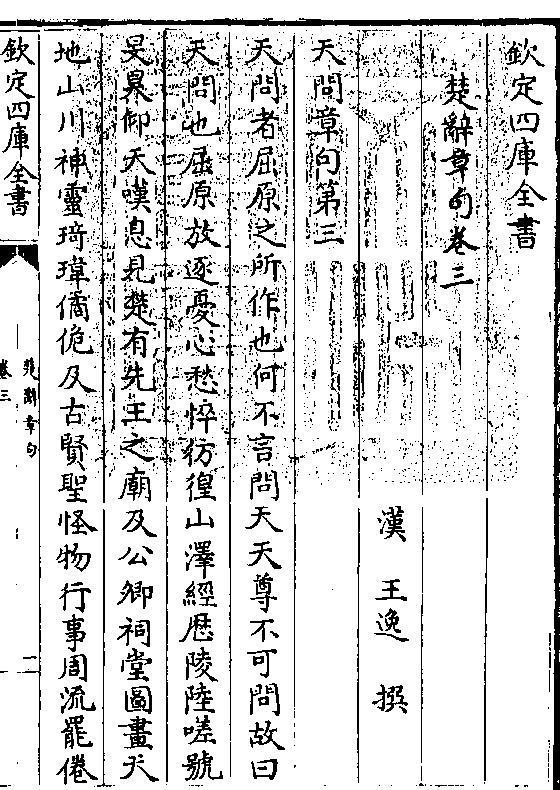 欽定四庫全書
楚辭章句卷三
漢 王逸 撰
天問章句第三
天問者屈原之所作也何不言問天天尊不可問故曰
天問也屈原放逐憂心愁悴彷徨山澤經歴陵陸嗟號
旻昊仰天嘆息見楚有先王之廟及公卿祠堂圖畫天
地山川神靈琦瑋僪佹及古賢聖怪物行事周流罷倦
欽定四庫全書
楚辭章句
卷三
一